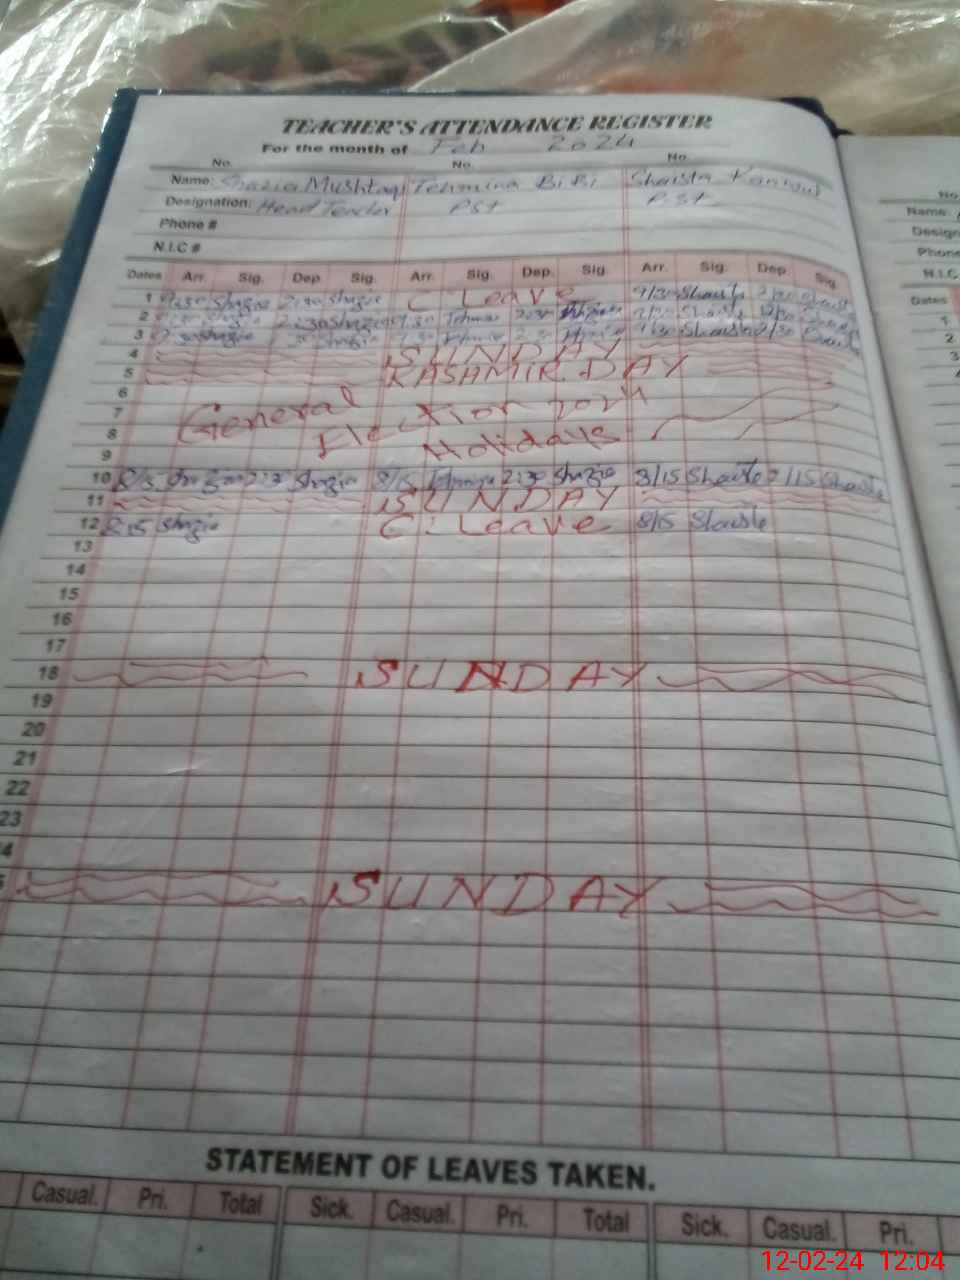 TEACHER'S ATTENDANCE REGISTER
For the month of Feb 2024
No. No. No
Name: Shazia Mushtaq Tehmina BiBi Shaista Kanwal
Designation: Head Teacher PST P.ST
Phone #
N.I.C #
Dates Arr. Sig. Dep. Sig. Arr. Sig. Dep. Sig Arr. Sig. Dep. Sig.
1 9:30 Shazia 2:30 Shazia C. Leave 9/30 Shaista 2/30 Shaista
2 9:30 Shazia 2:30 Shazia 9:30 2:30 9/30 Shaista 2/30
3 9:30 Shazia Shazia 9:30 2:30 9/30 Shaista 2/30
4 SUNDAY
5 KASHMIR DAY
6
7 General Election 2024
8 Holidays
9
10 8/15 2:30 Shazia 8/15 Tehmina 2:30 8/15 Shaista 2/15 Shaista
11 SUNDAY
12 8:15 Shazia C. Leave 8/15 Shaista
13
14
15
16
17
18 SUNDAY
19
20
21
22
23
4
5 SUNDAY
STATEMENT OF LEAVES TAKEN.
Casual. Pri. Total Sick. Casual. Pri. Total Sick. Casual. Pri.
No
Name:
Design
Phone
N.I.C
Dates
1
2
3
12-02-24 12:04